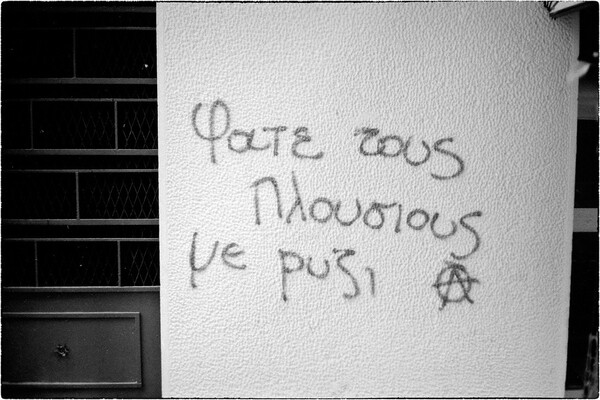 Φατε τους
πλουσιους
με ρυζι Ⓐ